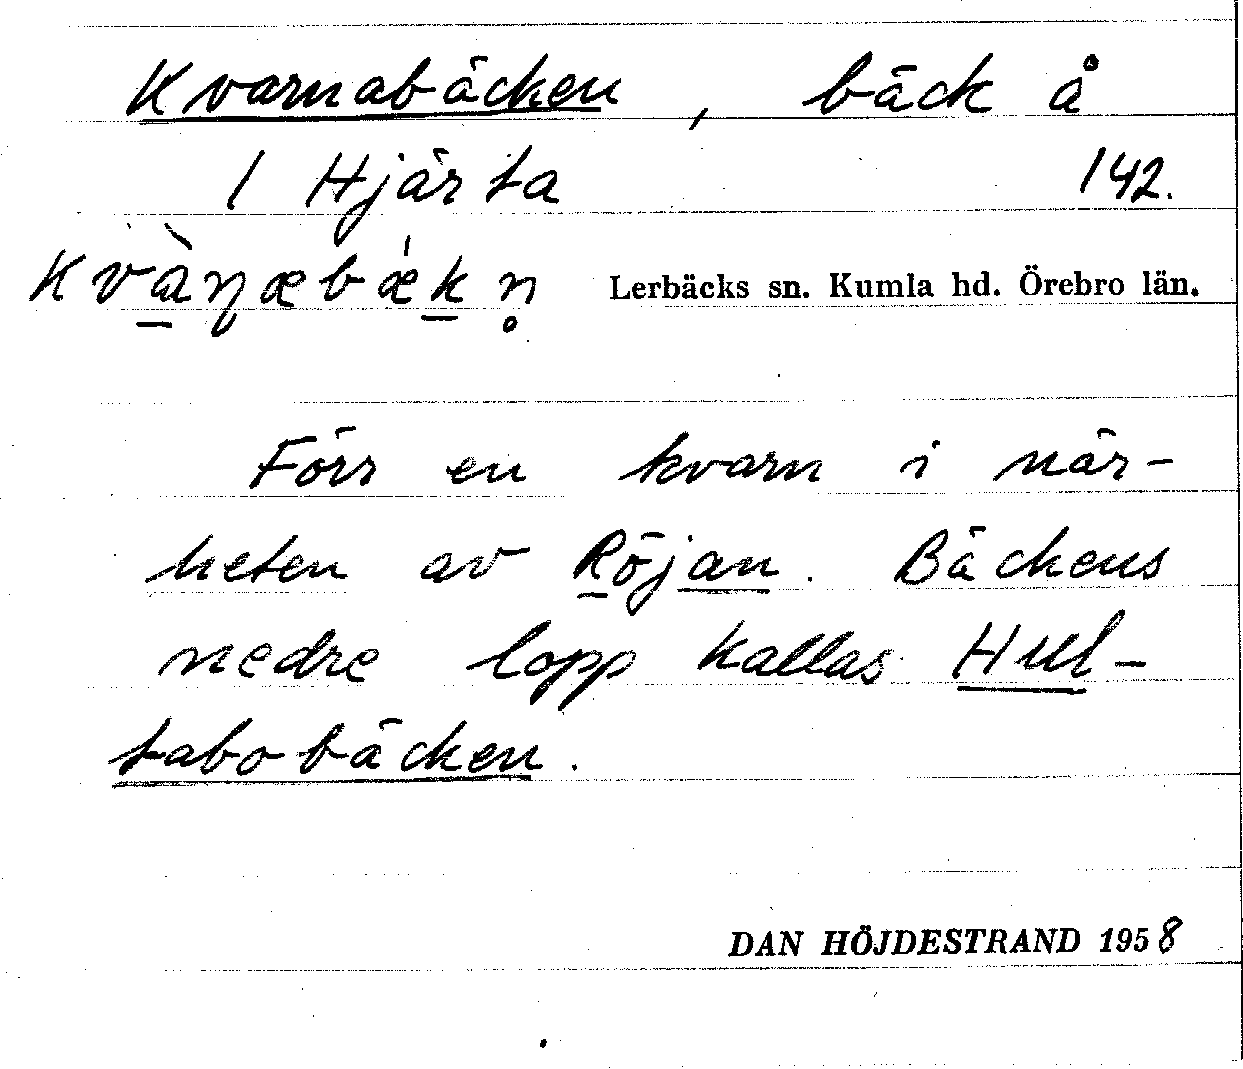 Kvarnabäcken, bäck å
1 Hjärta 142.
Kvàɳæbǽkn̥ Lerbäcks sn. Kumla hd. Örebro län.
Förr en kvarn i när-
heten av Röjan. Bäckens
nedre lopp kallas Hul-
tabobäcken.
DAN HÖJDESTRAND 1958